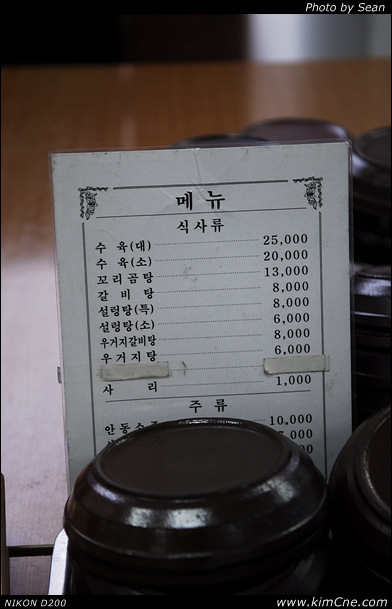 Photo by Sean
메 뉴
식사류
수 육(대) 25,000
수 육(소) 20,000
꼬리곰탕 13,000
갈 비 탕 8,000
설렁탕(특) 8,000
설렁탕(소) 6,000
우거지갈비탕 8,000
우거지탕 6,000
사 리 1,000
주 류
안동소주 10,000
NIKON D200
www.kimCne.com